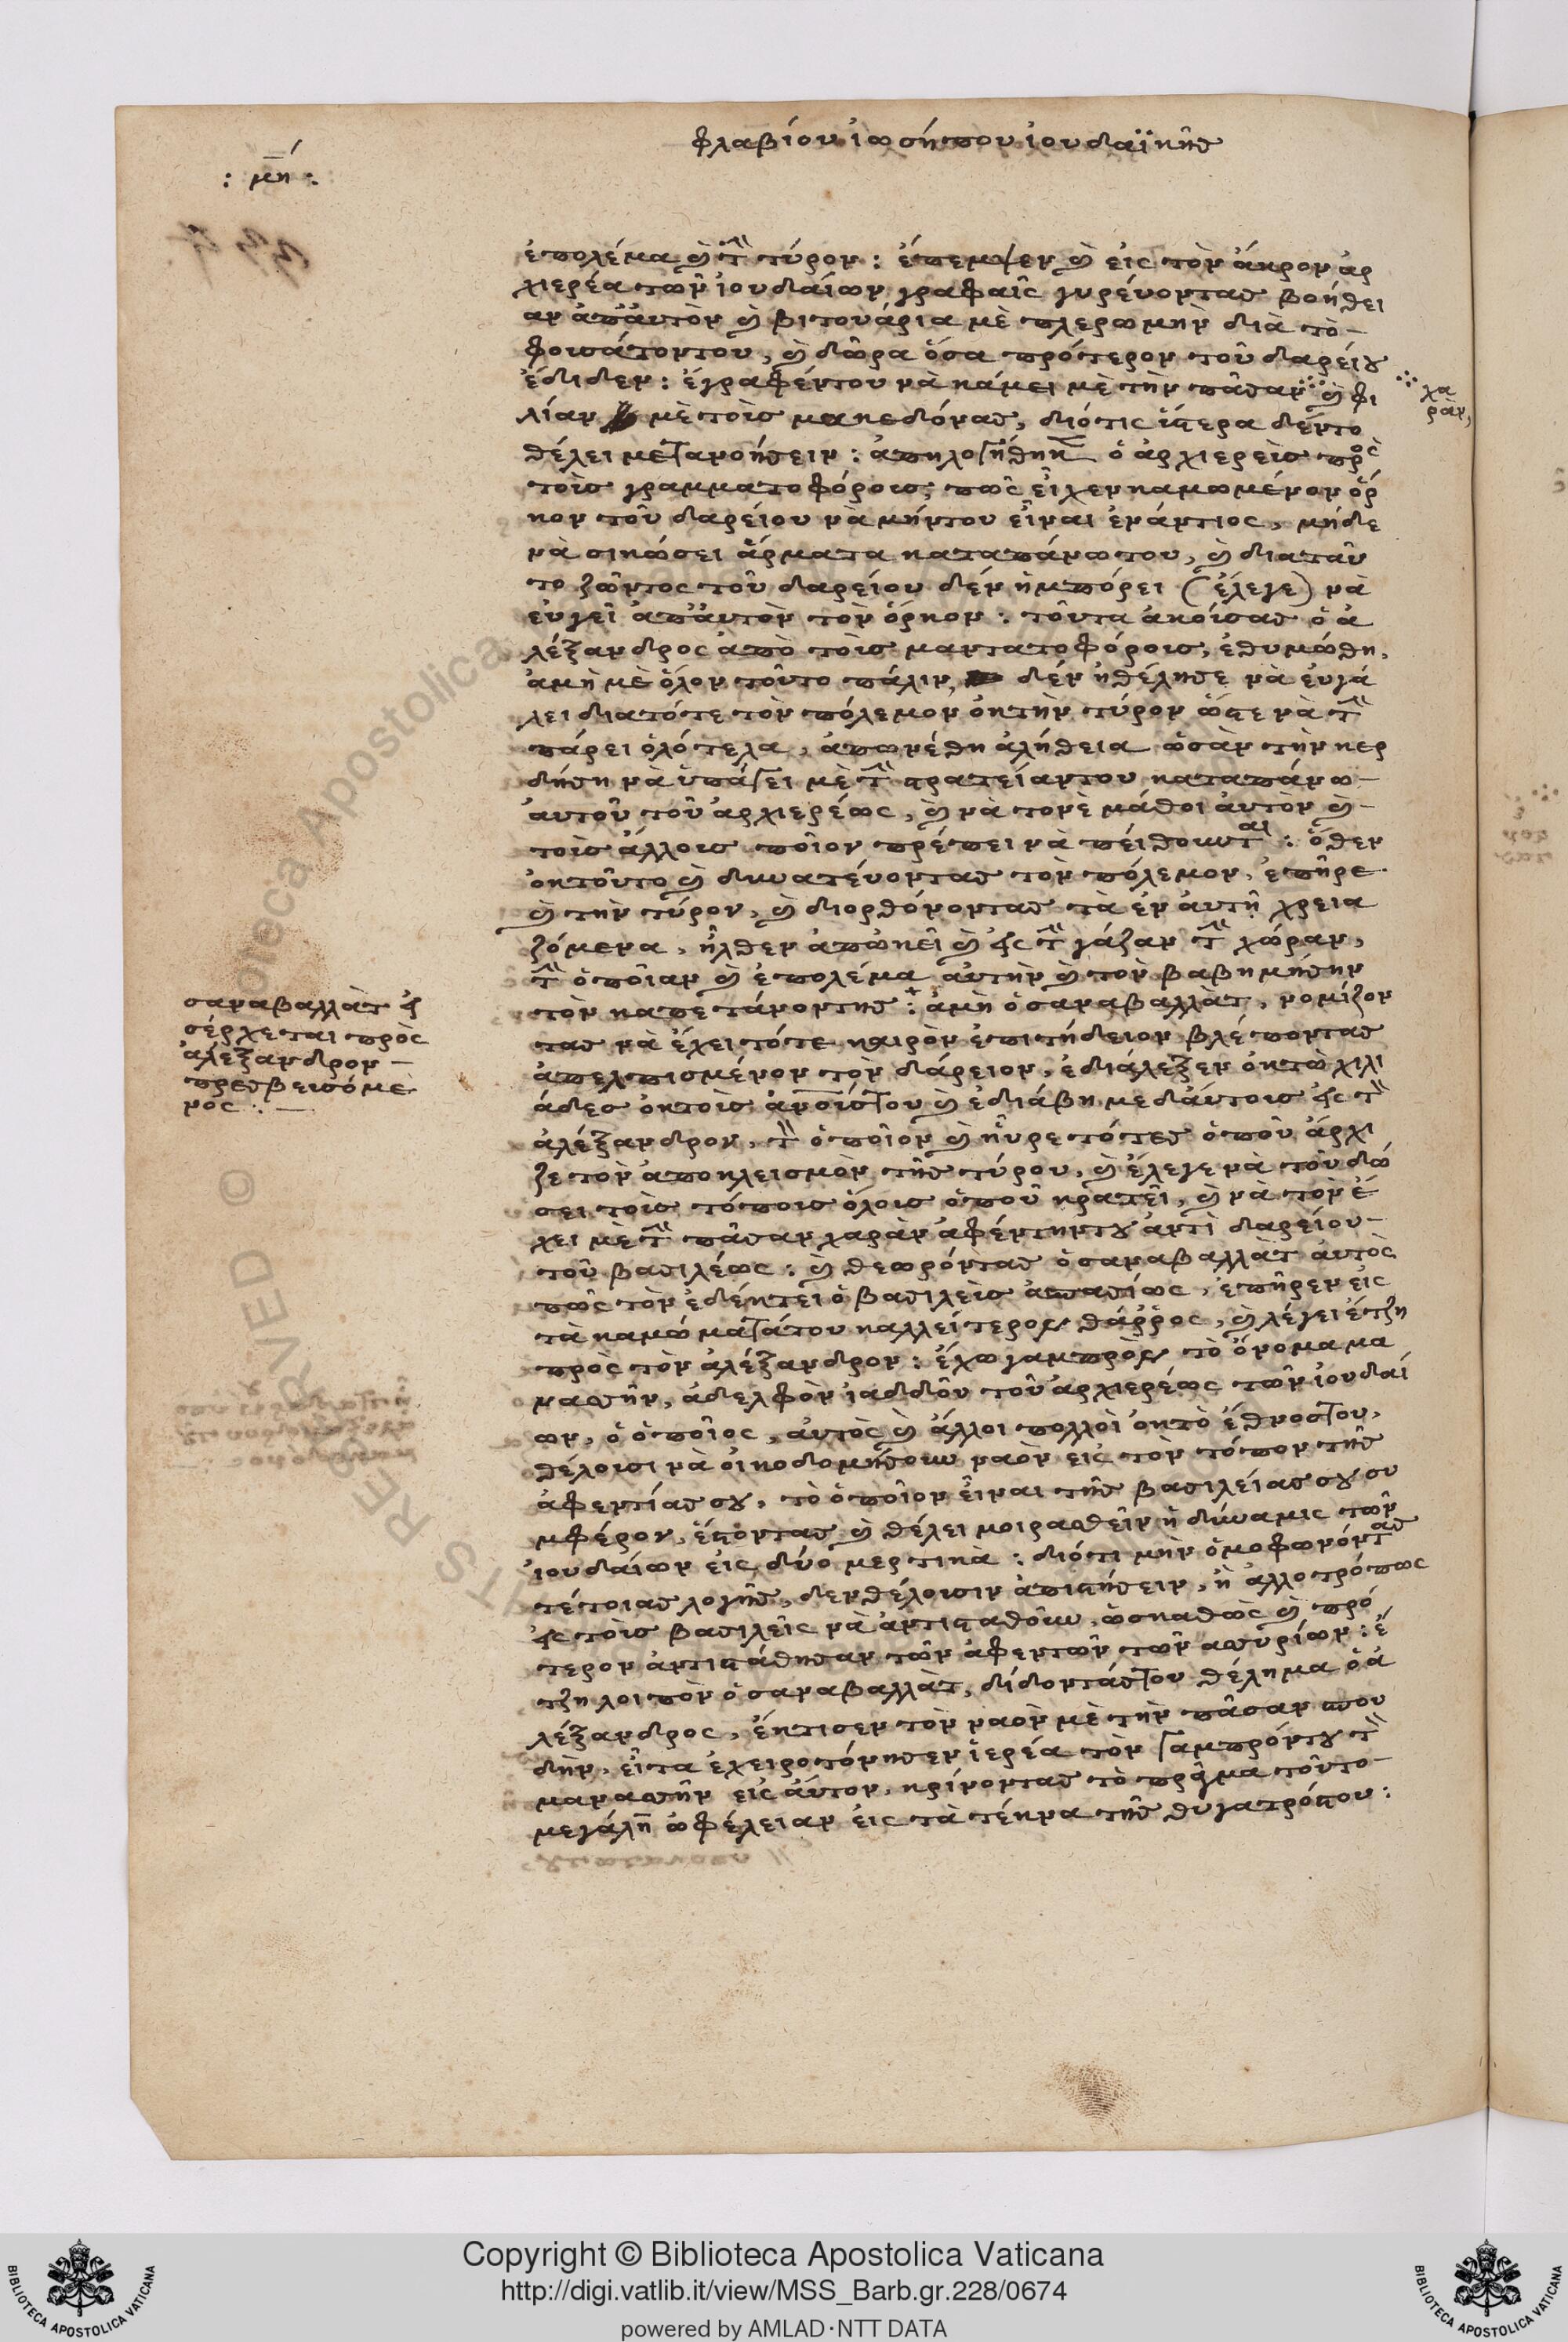 φλαβίου ἰωσήπου ἰουδαϊκῆς
: μη :
ἐπολέμα καὶ τὴν τύρον : ἔπεμψεν καὶ εἰς τὸν ἄκρον ἀρ
χιερέα τῶν ἰουδαίων γραφαῖς γυρέυοντας βοήθει
αν ἀπἀυτὸν καὶ βιτουάρια μὲ πλερωμὴν διὰ τὸ –
φουσάτοντου, καὶ δῶρα ὅσα πρότερον τοῦ δαρείου
ἔδιδεν : ἐγραφέντου νὰ κάμει μὲ τὴν πᾶσαν ∴ καὶ φι
∴ χα
ρὰν,
λίαν μὲ τοὺς μακεδόνας, διότις ὕστερα δέντο
θέλει μετανοήσειν : ἀπηλογήθηκεν ὁ ἀρχιερεὺς πρὸς
τοὺς γραμματοφόρους, πῶς εἶχεν καμωμένον ὅρ
κον τοῦ δαρείου νὰ μήντου εἶναι ἐνάντιος, μήδε
νὰ σικώσει ἄρματα καταπάνωτου, καὶ διαταῦ
το ζῶντος τοῦ δαρείου δὲν ἠμπόρει (ἔλεγε) νὰ
ἐυγεῖ ἀπἀυτὸν τὸν ὅρκον : τοῦτα ἀκούσας ὁ ἀ
λέξανδρος ἀπὸ τοὺς μαντατοφόρους, ἐθυμώθη,
ἀμὴ μὲ ὅλον τοῦτο πάλιν, δὲν ἠθέλησε νὰ ἐυγά
λει διατότε τὸν πόλεμον ὀκτὴν τύρον ὥστε νὰ τὴν
πάρει ὁλότελα, ἀπωκέθη ἀλήθεια ὡσὰν τὴν κερ
δήση νὰ ὑπάγει μὲ τὴν στρατείαντου καταπάνω –
αυτοῦ τοῦ ἀρχιερέως, καὶ νὰ τονὲ μάθοι ἀυτὸν καὶ –
τοὺς ἄλλους ποῖον πρέπει νὰ πείθουνται : ὅθεν
ὀκτοῦτο καὶ δυνατέυοντας τὸν πόλεμον, ἐπῆρε
καὶ τὴν τύρον, καὶ διορθόνοντας τὰ ἐν ἀυτῇ χρεια
ζόμενα, ἦλθεν ἀπὠκεῖ καὶ εἰς τὴν γάζαν τὴν χώραν,
τὴν ὁποῖαν καὶ ἐπολέμα ἀυτὴν καὶ τὸν βαβημήσην
τὸν καπετάνοντης : ἀμὴ ὁ σαναβαλλὰτ, νομίζον
σαναβαλλὰτ εἰ
σέρχεται πρὸς
ἀλέξανδρον –
πρεσβευόμε
νος : –
τας νὰ ἔχει τότε καιρὸν ἐπιτήδειον βλέποντας
ἀπελπισμένον τὸν δάρειον, ἐδιάλεξεν ὀκτὼ χιλι
άδες ὀκτοὺς ἀνθρώπους του καὶ ἐδιάβη μεδἀυτους εἰς τὸν
ἀλέξανδρον, τὸν ὁποῖον καὶ ἦυρε τότες ὁποῦ ἄρχι
ζε τὸν ἀποκλεισμὸν τῆς τύρου, καὶ ἔλεγε νὰ τοῦ δώ
σει τοὺς τόπους ὅλους ὁποῦ κρατεῖ, καὶ νὰ τὸν ἔ
χει μὲ τὴν πᾶσαν χαρὰν ἀφέντηντου ἀντὶ δαρείου –
τοῦ βασιλέως : καὶ θεωρόντας ὁ σαναβαλλὰτ ἀυτὸς
πῶς τὸν ἐδέκτει ὁ βασιλεὺς ἀπασίως, ἐπῆρεν εἰς
τὰ καμώματάτου καλλείτερον θάῤῥος, καὶ λέγει ἔτζη
πρὸς τὸν ἀλέξανδρον : ἔχω γαμπρὸν τὸ ὄνομα μα
νασῆν, ἀδελφὸν ἰαδδοῦν τοῦ ἀρχιερέως τῶν ἰουδαί
ων, ὁ ὁποῖος, ἀυτὸς καὶ ἄλλοι πολλοὶ ὀκτὸ ἔθνοστου,
θέλουσι νὰ οἰκοδομήσουν ναὸν εἰς τὸν τόπον τῆς
ἀφεντίας σου, τὸ ὁποῖον εἶναι τῆς βασιλείας σου συ
μφέρον, ἔστοντας καὶ θέλει μοιρασθεῖν ἡ δύναμις τῶν
ἰουδαίων εἰς δύο μερτικὰ : διότι μὴν ὁμοφωνόντας
τέτοιας λογῆς, δενθέλουσιν ἀπιστήσειν, ἢ ἀλλοτρόπως
εἰς τοὺς βασιλεῖς νὰ ἀντισταθοῦν, ὡσκαθὼς καὶ πρό
τερον ἀντιστάθησαν τῶν ἀφεντῶν τῶν ασσυρίων : ἔ
τζη λοιπὸν ὁ σαναβαλλὰτ, δίδοντάστου θέλημα ὁ ἀ
λέξανδρος, ἔκτισεν τὸν ναὸν μὲ τὴν πᾶσαν σπου
δὴν, εἶτα ἐχειροτόνησεν ἱερέα τὸν γαμπρόντου τὸν
μανασσῆν εἰς ἀυτον, κρίνοντας τὸ πρᾶγμα τοῦτο –
μεγάλην ὠφέλειαν εἰς τὰ τέκνα τῆς θυγατρόστου :
Copyright © Biblioteca Apostolica Vaticana
http://digi.vatlib.it/view/MSS_Barb.gr.228/0674
powered by AMLAD·NTT DATA
BIBLIOTECA APOSTOLICA VATICANA
BIBLIOTECA APOSTOLICA VATICANA